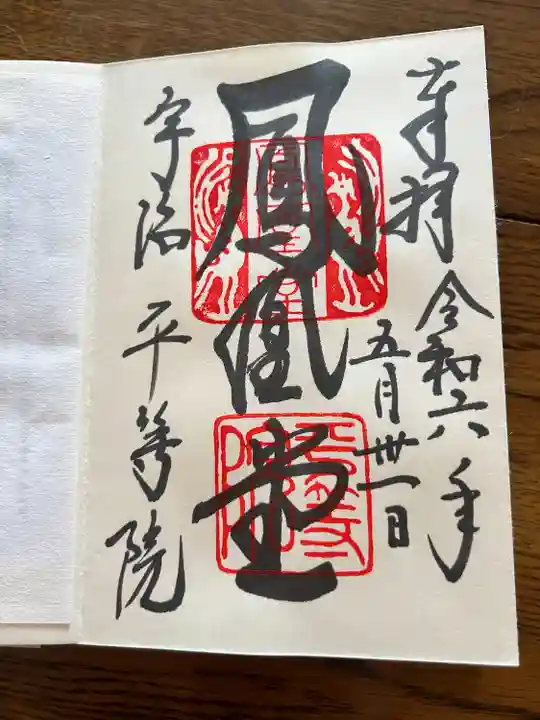 奉拝
令和六年
五月卅一日
鳳凰堂
宇治 平等院